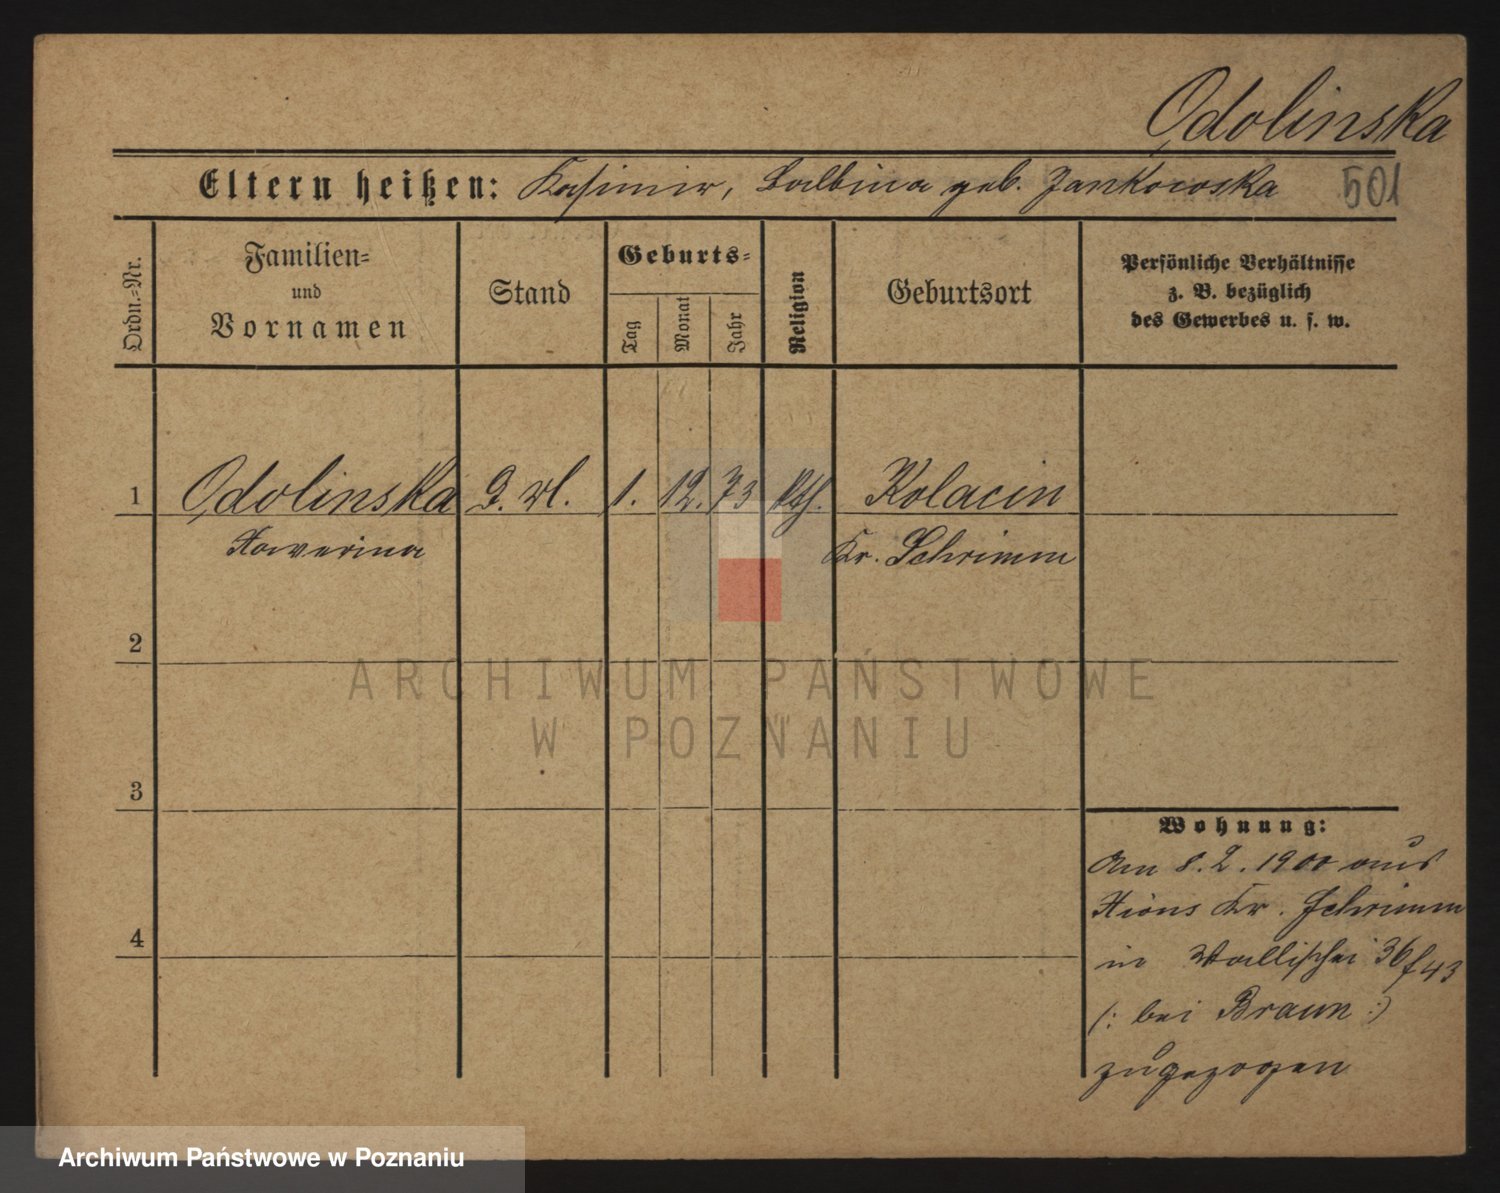 Odolinska
Eltern heißen: Kasimir, Balbina geb. Jankowska 501
Ordn.-Nr.
Familien-
und
Vornamen
Stand
Geburts-
Tag
Monat
Jahr
Religion
Geburtsort
Persönliche Verhältnisse
z. B. bezüglich
des Gewerbes u. s. w.
1 Odolinska 1. 12. 73 kth. Kolacin
Xawerina Kr. Schrimm
2
3
4
Wohnung:
Am 8. 2. 1900 aus
Xions Kr. Schrimm
in Wallischei 36/43
(: bei Braun :)
zugezogen
ARCHIWUM PAŃSTWOWE
W POZNANIU
Archiwum Państwowe w Poznaniu